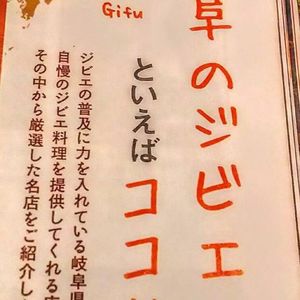 Gifu
阜のジビエ
といえば
ココ
ジビエの普及に力を入れている岐阜県
自慢のジビエ料理を提供してくれる
その中から厳選した名店をご紹介し